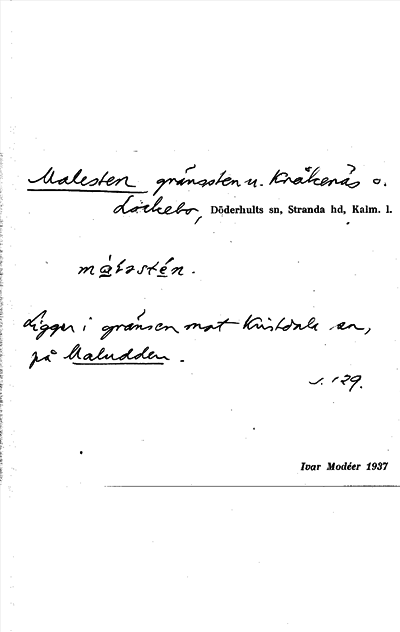 Malesten gränssten u. Kråkenäs o.
Löckebo, Döderhults sn, Stranda hd, Kalm. l.
må̀lɘstén.
Ligger i gränsen mot Kristdala sn,
på Maludden.
s. 129.
Ivar Modéer 1937